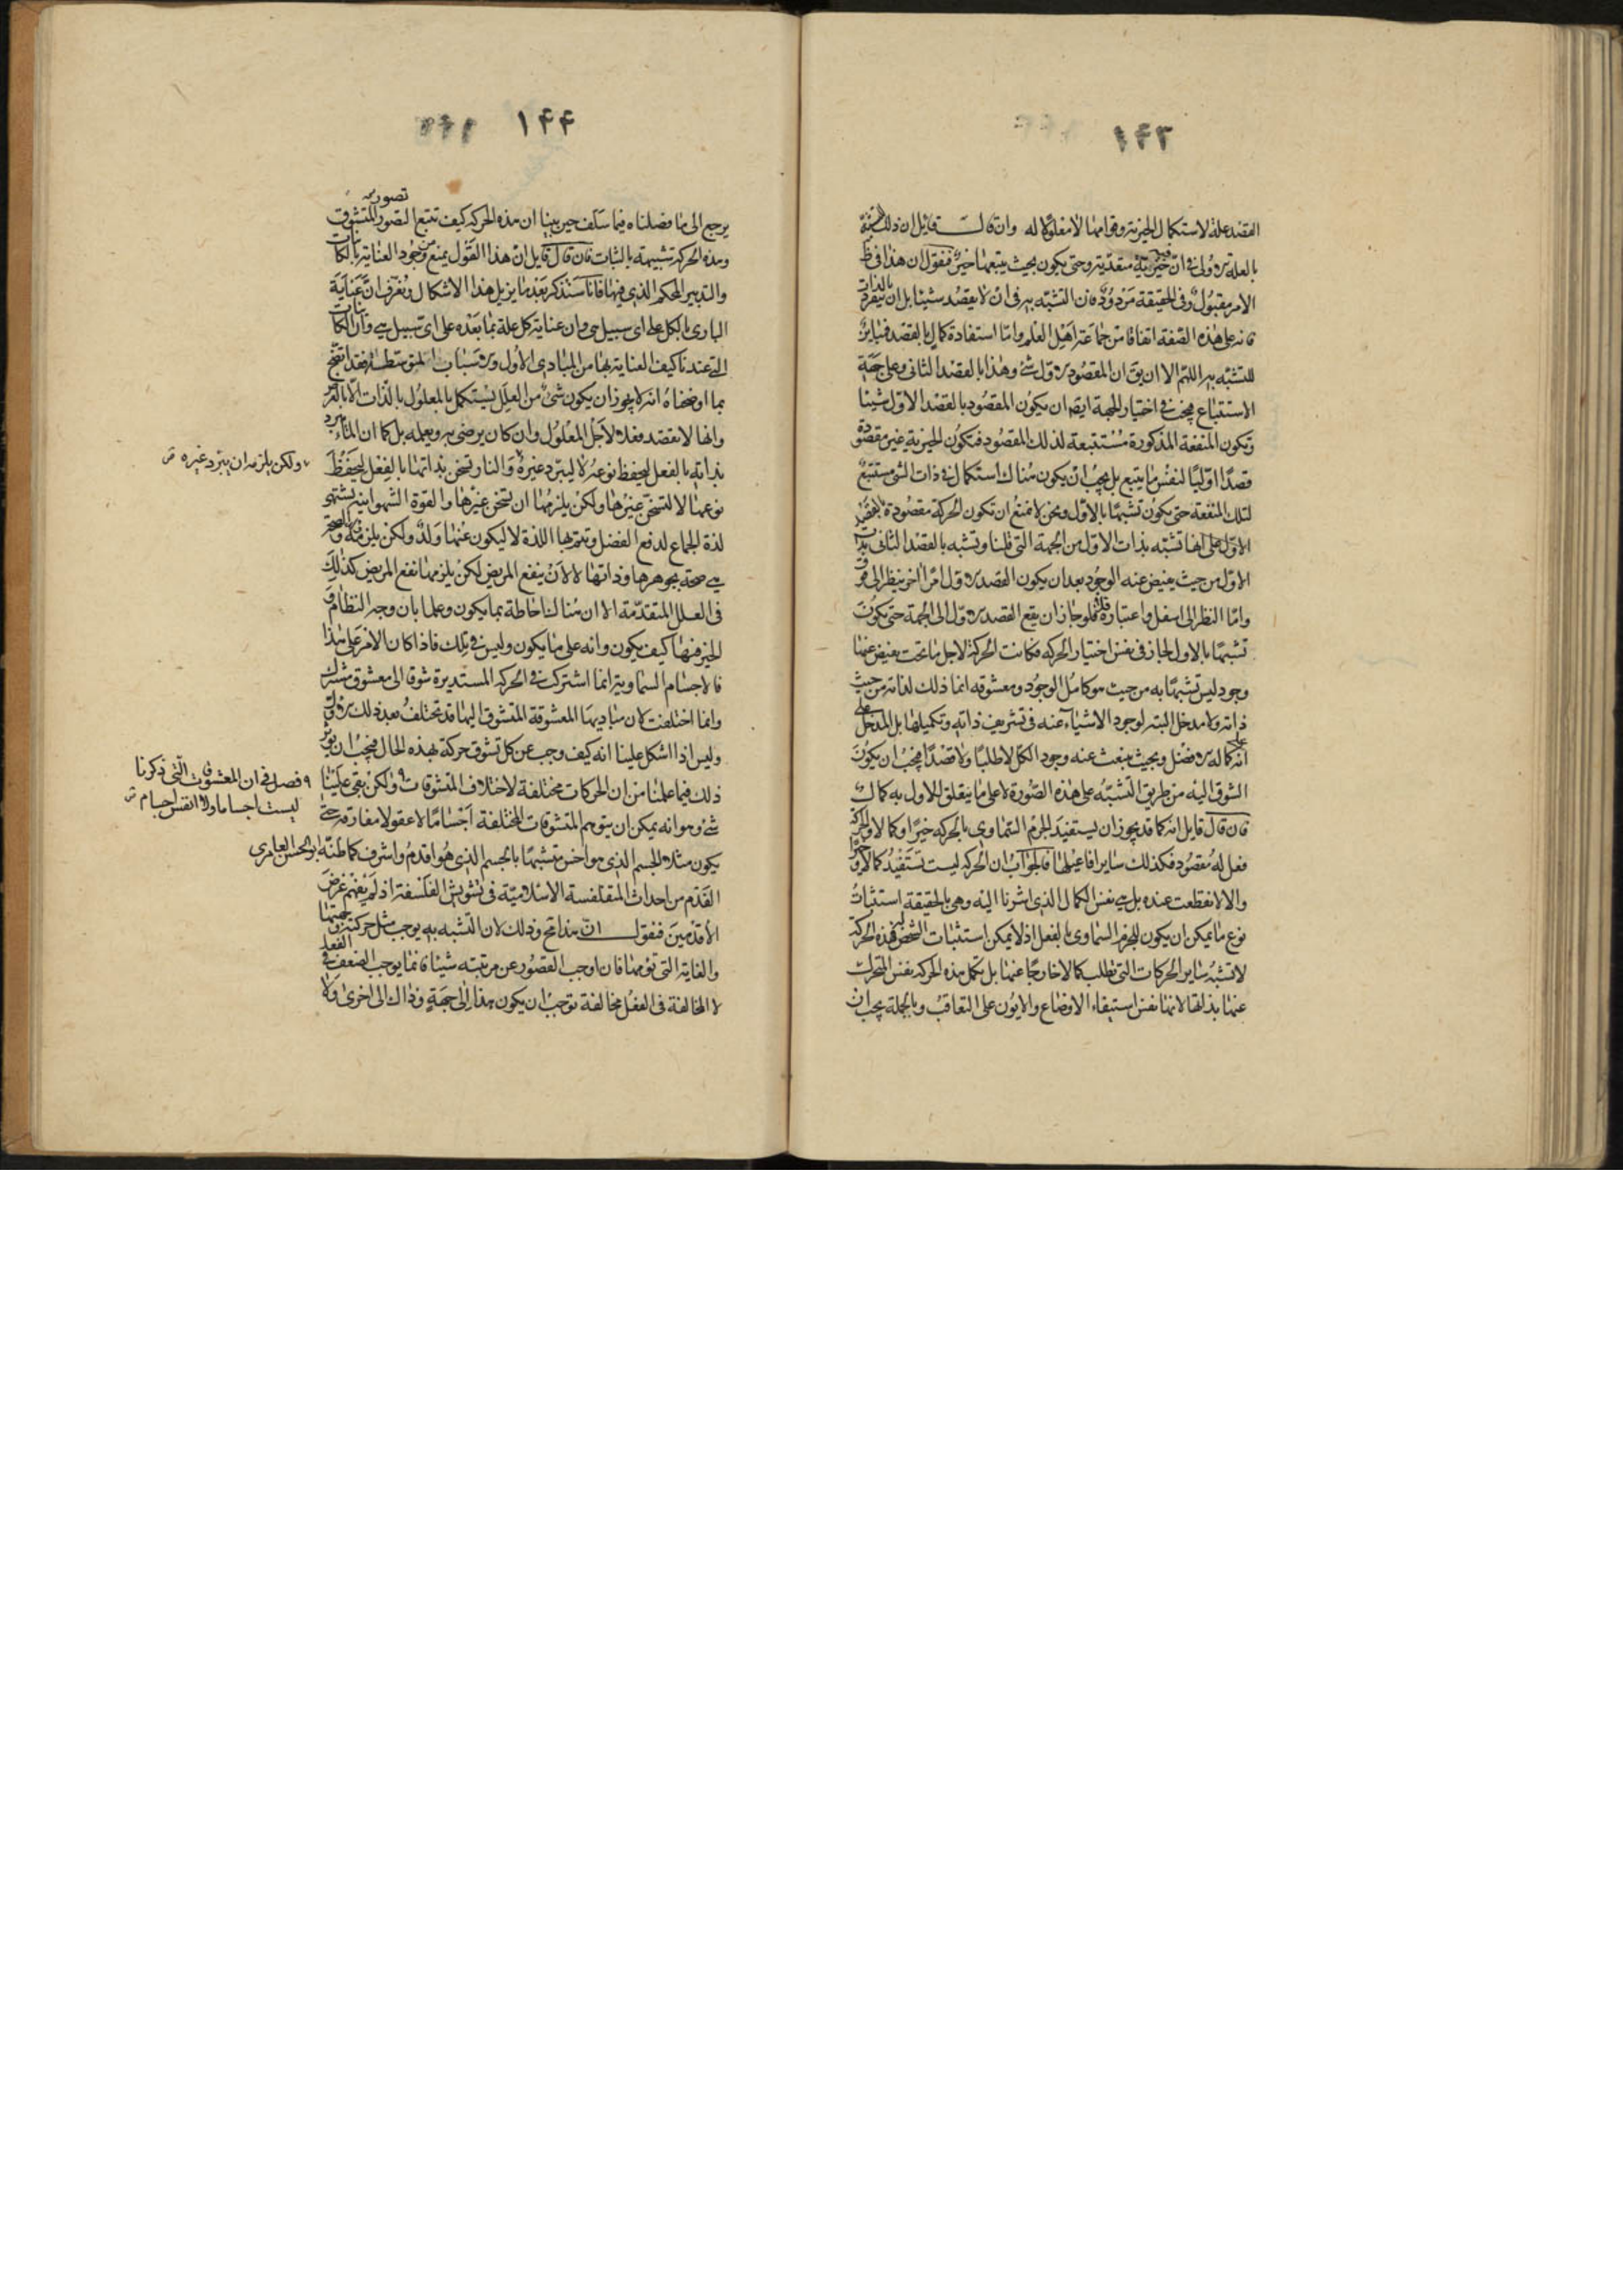 ١۴٣
القصد علة لاستكمال الخيرية وقوامها لا معلولا له وان قالـــت قايل ان ذلك تشبّه
بالعلة الاولى فى ان خيريته متعدّية وحتى يكون بحيث يتبعها خير فنقول ان هذا فى ظ
الامر مقبول وفى الحقيقة مردود فان التشبّه به فى ان لا يقصد شيئا بل ان ينفرد بالذات
فانه على هذه الصفة اتفاقا من جماعة اهل العلم وامّا استفادة كمال بالقصد فمباين
للتشبّه به اللهمّ الا ان يق ان المقصود الاول شئ وهذا بالقصد الثانى وعلى جهة
الاستتباع فيجب فى اختيار الجهة ايضا ان يكون المقصود بالقصد الاول شيئا
وتكون المنفعة المذكورة مستتبعة لذلك المقصود فتكون الخيرية غير مقصودة
قصدًا اوّليًا لنفس ما يتبع بل يجب ان يكون هناك استكمال فى ذات الشئ مستتبع
لتلك المنفعة حتى يكون تشبّها بالاوّل ونحن لا نمنع ان تكون الحركة مقصودة بالقصد
الاوّل على انها تشبّه بذات الاوّل من الجهة التى قلنا وتشبه بالقصد الثانى بذات
الاوّل من حيث يفيض عنه الوجود بعد ان يكون القصد الاول امرًا اخر ينظر الى فوق
وامّا النظر الى اسفل واعتباره فلا فلو جاز ان يقع القصد الاوّل الى الجهة حتى يكون
تشبّها بالاول لجاز فى نفس اختيار الحركه فكانت الحركة لاجل ما تحت يفيض عنها
وجود ليس تشبّها به من حيث هو كامل الوجود ومعشوقه انما ذلك لذاته من حيث
ذاته ولا مدخل البتة لوجود الاشياء عنه فى تشريف ذاته وتكميلها بل المدخل على
انه كماله الافضل وبحيث ينبعث عنه وجود الكل لا طلبًا ولا قصدًا فيجب ان يكون
الشوق اليه من طريق التشبّه على هذه الصّورة لا على ما يتعلق للاول به كمال
فان قال قايل انه كما قد يجوز ان يستفيد الجرم السّماوى بالحركه خيرًا وكمالا والحركة
فعل له مقصود فكذلك ساير افاعيلها فالجواب ان الحركه ليست تستفيد كمالا وخيرًا
والا لانقطعت عنده بل هى نفس الكمال الذى اشرنا اليه وهى بالحقيقة استثبات
نوع ما يمكن ان يكون للجرم السّماوى بالفعل اذ لا يمكن استثبات الشخص له فهذه الحركة
لا تشبه ساير الحركات التى تطلب كمالا خارجًا عنها بل تكمل بهذه الحركه نفس المتحرك
عنها بذاتها لانها نفس استبقاء الاوضاع والايون على التعاقب وبالجملة يجب ان
١۴۴
يرجع الى ما فصلناه فيما سلف حين بينا ان هذه الحركه كيف تتبع التصور المتشوق
تصور
وهذه الحركه شبيهة بالثبات فان قال قايل ان هذا القول يمنع من وجود العناية بالكاينات
والتدبير المحكم الذى فيها فانا سنذكر بعد ما يزيل هذا الاشكال ونعرّف انّ عناية
البارى بالكل على اى سبيل هى وان عناية كل علة بما بعده على اى سبيل هى وان الكاينات
التى عندنا كيف العناية بها من المبادى الاول والاسباب المتوسّطة فقد اتضح
بما اوضحناه انه لا يجوز ان يكون شئ من العلل يستكمل بالمعلول بالذات الا بالعرض
وانها لا تقصد فعلا لاجل المعلول وان كان يرضى به ويعلمه بل كما ان الماء يبرد
بذاته بالفعل ليحفظ نوعه لا ليبرد غيره والنار تسخن بذاتها بالفعل ليحفظ
ولكن يلزمه ان يبرّد غيره
نوعها لا لتسخن غيرها ولكن يلزمها ان تسخن غيرها والقوة الشهوانية تشتهى
لذة الجماع لدفع الفضل وتتم بها اللذة لا ليكون عنها ولد ولكن يلزمه والصحة
هى صحة بجوهرها وذاتها لا لان ينفع المريض لكن يلزمها نفع المريض كذلك
فى العلل المتقدّمة الا ان هناك احاطة بما يكون وعلما بان وجه النظام و
الخير فيها كيف يكون وانه على ما يكون وليس فى تلك فاذا كان الامر على هذا
فالاجسام السّماوية انما اشتركت فى الحركه المستديرة شوقا الى معشوق مشترك
وانما اختلفت لان مباديها المعشوقة المتشوق اليها قد تختلف بعد ذلك الاول
وليس اذا اشكل علينا انه كيف وجب عن كل تشوق حركة بهذه الحال فيجب ان يؤثر
ذلك فيما علمنا من ان الحركات مختلفة لاختلاف المتشوقات ولكن بقى علينا
فصل فى ان المعشوقات التى ذكرنا
ليست اجساما ولا انفس اجسام
شئ وهو انه يمكن ان يتوهم المتشوقات المختلفة اجسامًا لا عقولا مفارقة حتى
يكون مثلا الجسم الذى هو اخس متشبّها بالجسم الذى هو اقدم واشرف كما ظنّه ابوالحسن العامرى
القدم من احداث المتفلسفة الاسلاميّة فى تشويش الفلسفة اذ لم يفهم غرض
الاقدمين فنقول انّ هذا مح وذلك لان التشبه به يوجب مثل حركته وجهتها
والغاية التى تؤمها فان اوجب القصور عن مرتبته شيئا فانما يوجب الضعف فى الفعل
لا المخالفة فى الفعل مخالفة توجب ان يكون هذا الى جهة وذاك الى اخرى ولا